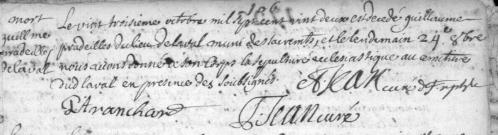 mort
guillme
pradeilles
de laval
Le vint troisieme octobre mil sept cent vint deux est decedé guillaume
pradeilles du lieu de laval muni des sacrements, et le lendemain 24e 8bre
nous avons donné à son corps la sepulture ecclesiastique au cimetiere
dud laval en presence des soubsignés
Jean curé
Tranchard
Jean curé